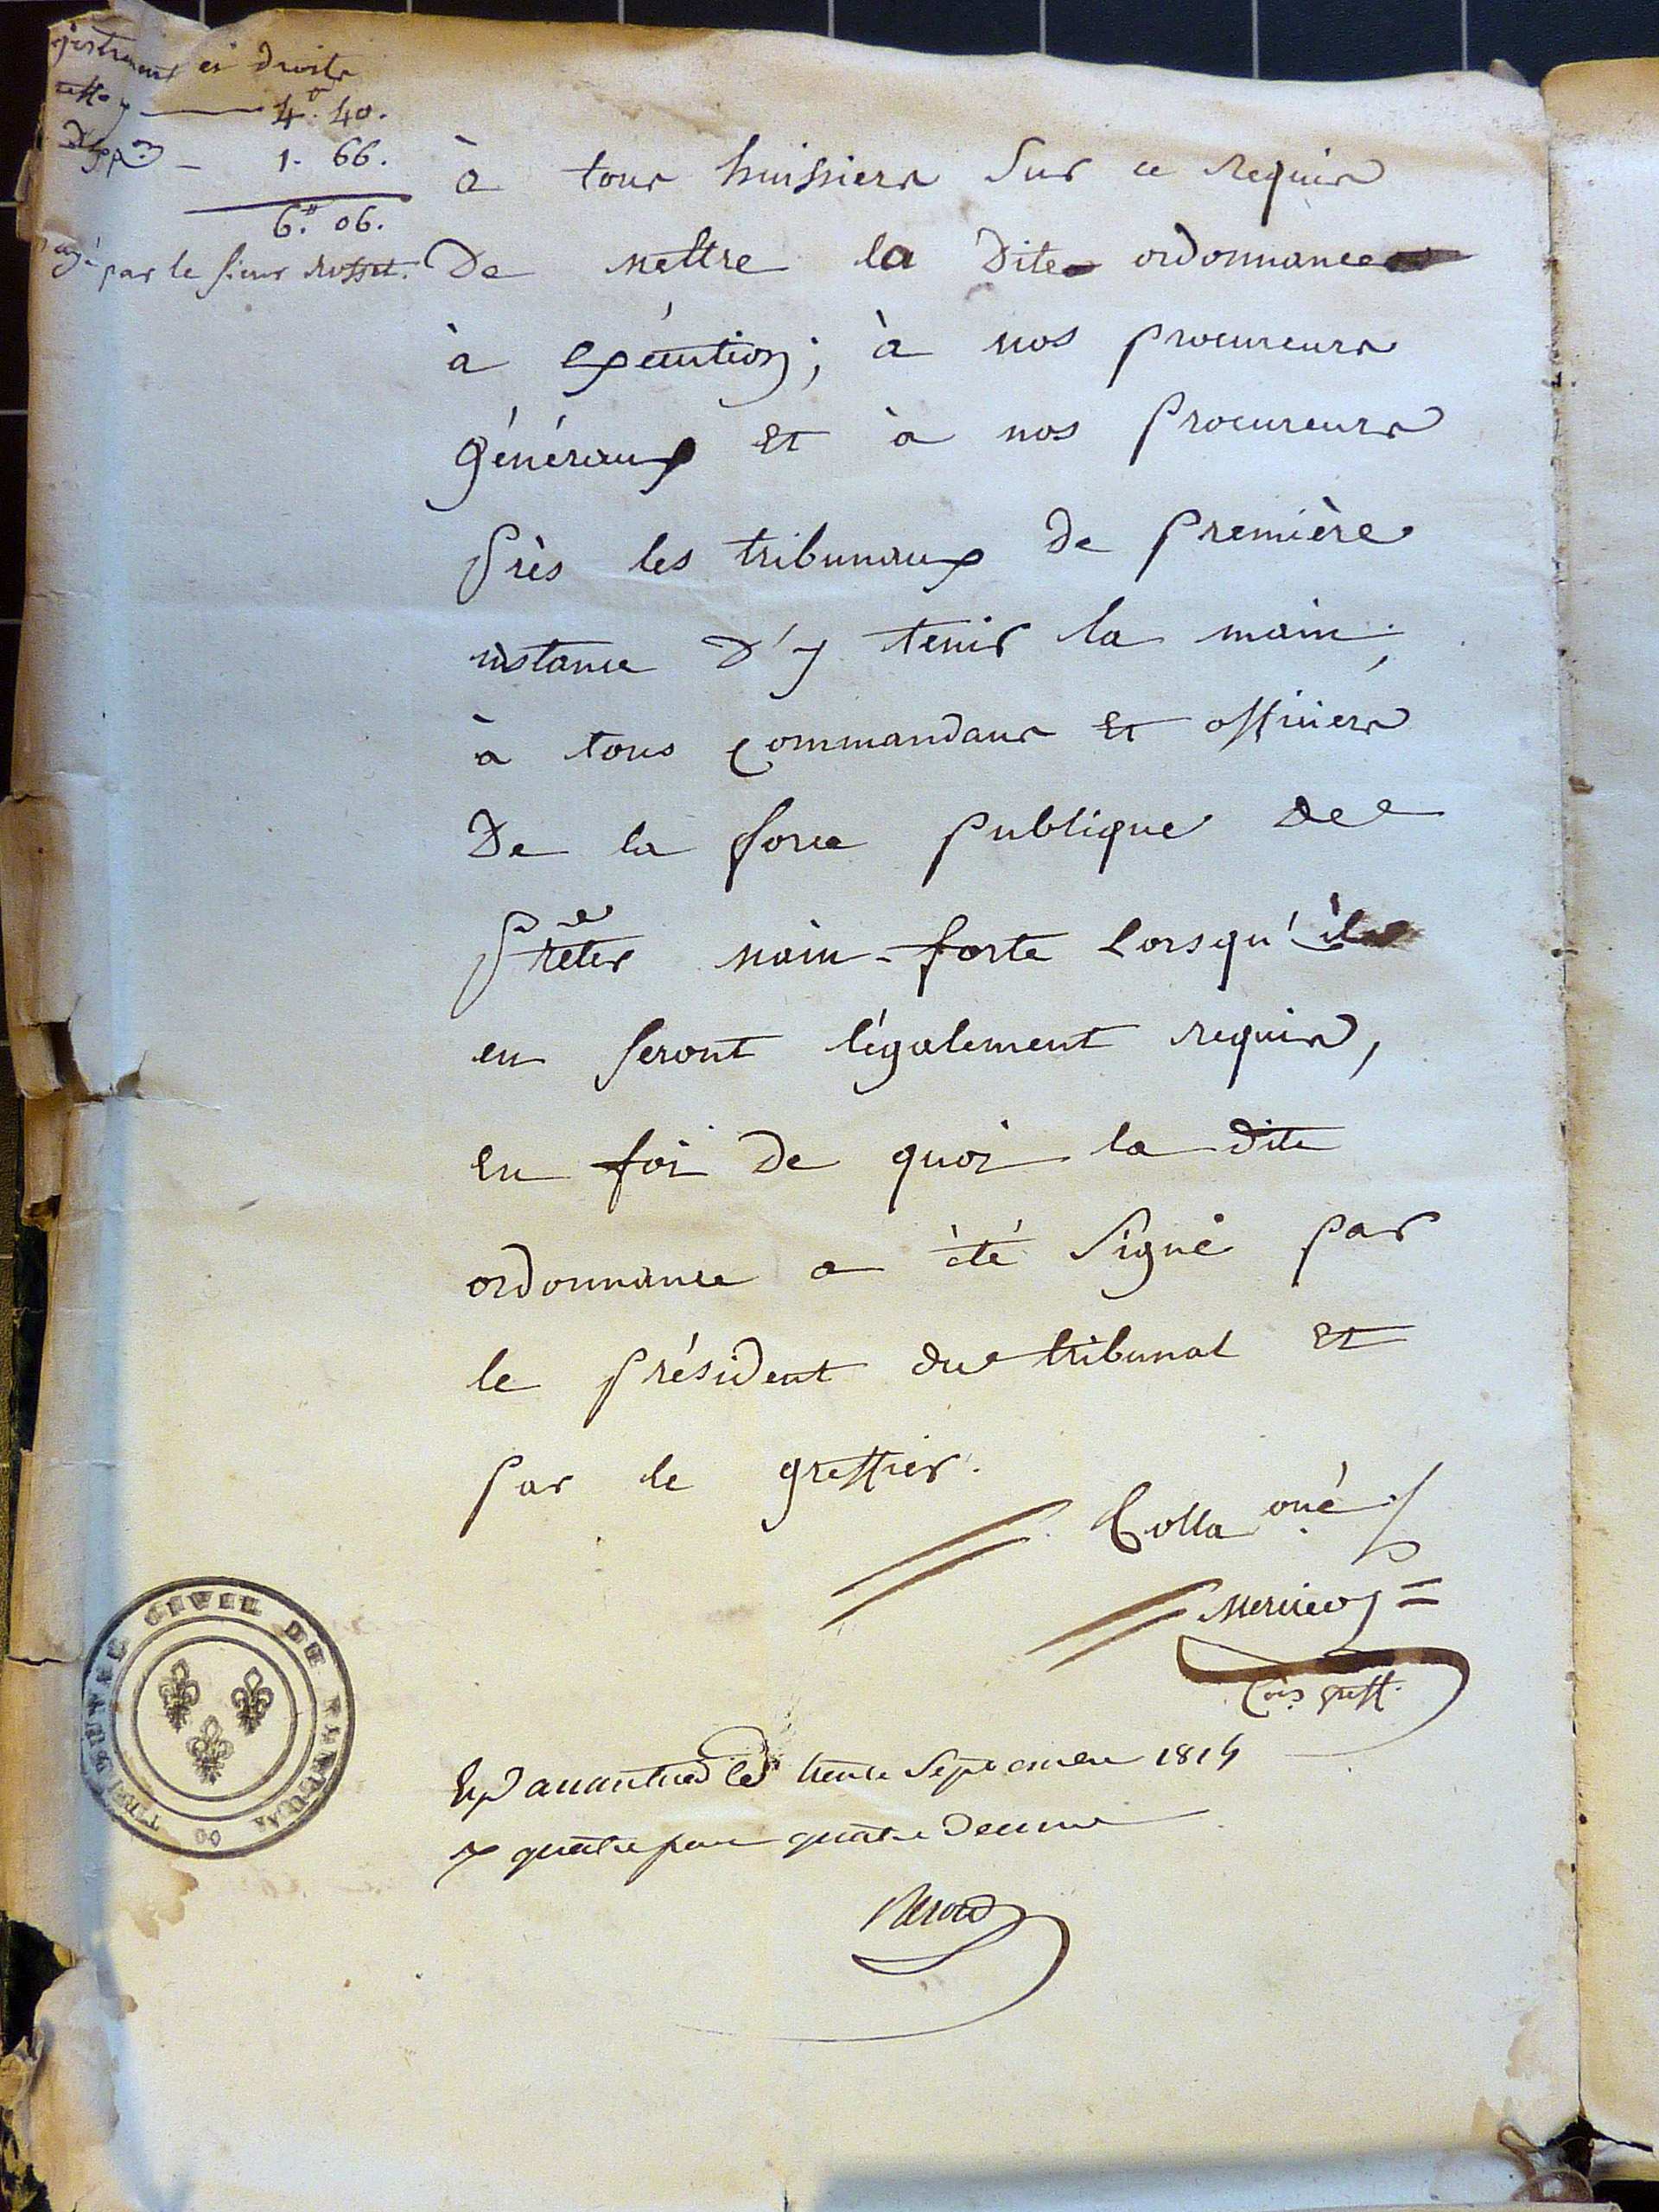 et Droits
4. 40.
1. 66.
6.# 06.
par le sieur
à tous huissiers sur ce requis
De mettre la Dite ordonnance
à exécution; à nos procureurs
généraux et à nos procureurs
près les tribunaux De première
instance D'y tenir la main;
à tous commandans et officiers
De la force publique de
prêter main-forte lorsqu'ils
en seront légalement requis,
en foi De quoi la dite
ordonnance a été signé par
le président du tribunal et
par le greffier.
Colla oné
Mercier
Cis greff.
le trente Septembre 1814
quatre quatre
TRIBUNAL CIVIL DE